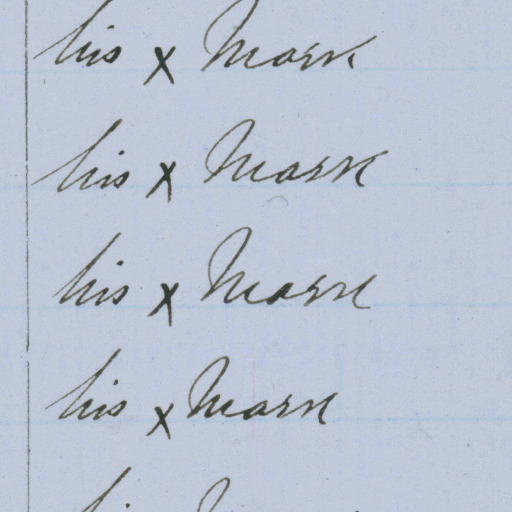 his x Mark
his x Mark
his x Mark
his x Mark